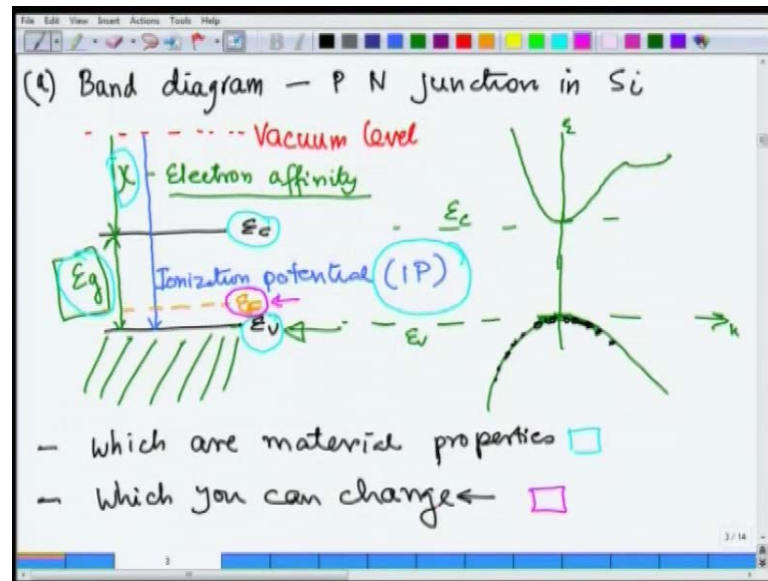 File Edit View Insert Actions Tools Help
(a) Band diagram – P N junction in Si
Vacuum level
ε
χ – Electron affinity
Ec
Ec
Eg
Ionization potential (IP)
EF
Ev
Ev
k
– which are material properties
– which you can change ←
3/14
3